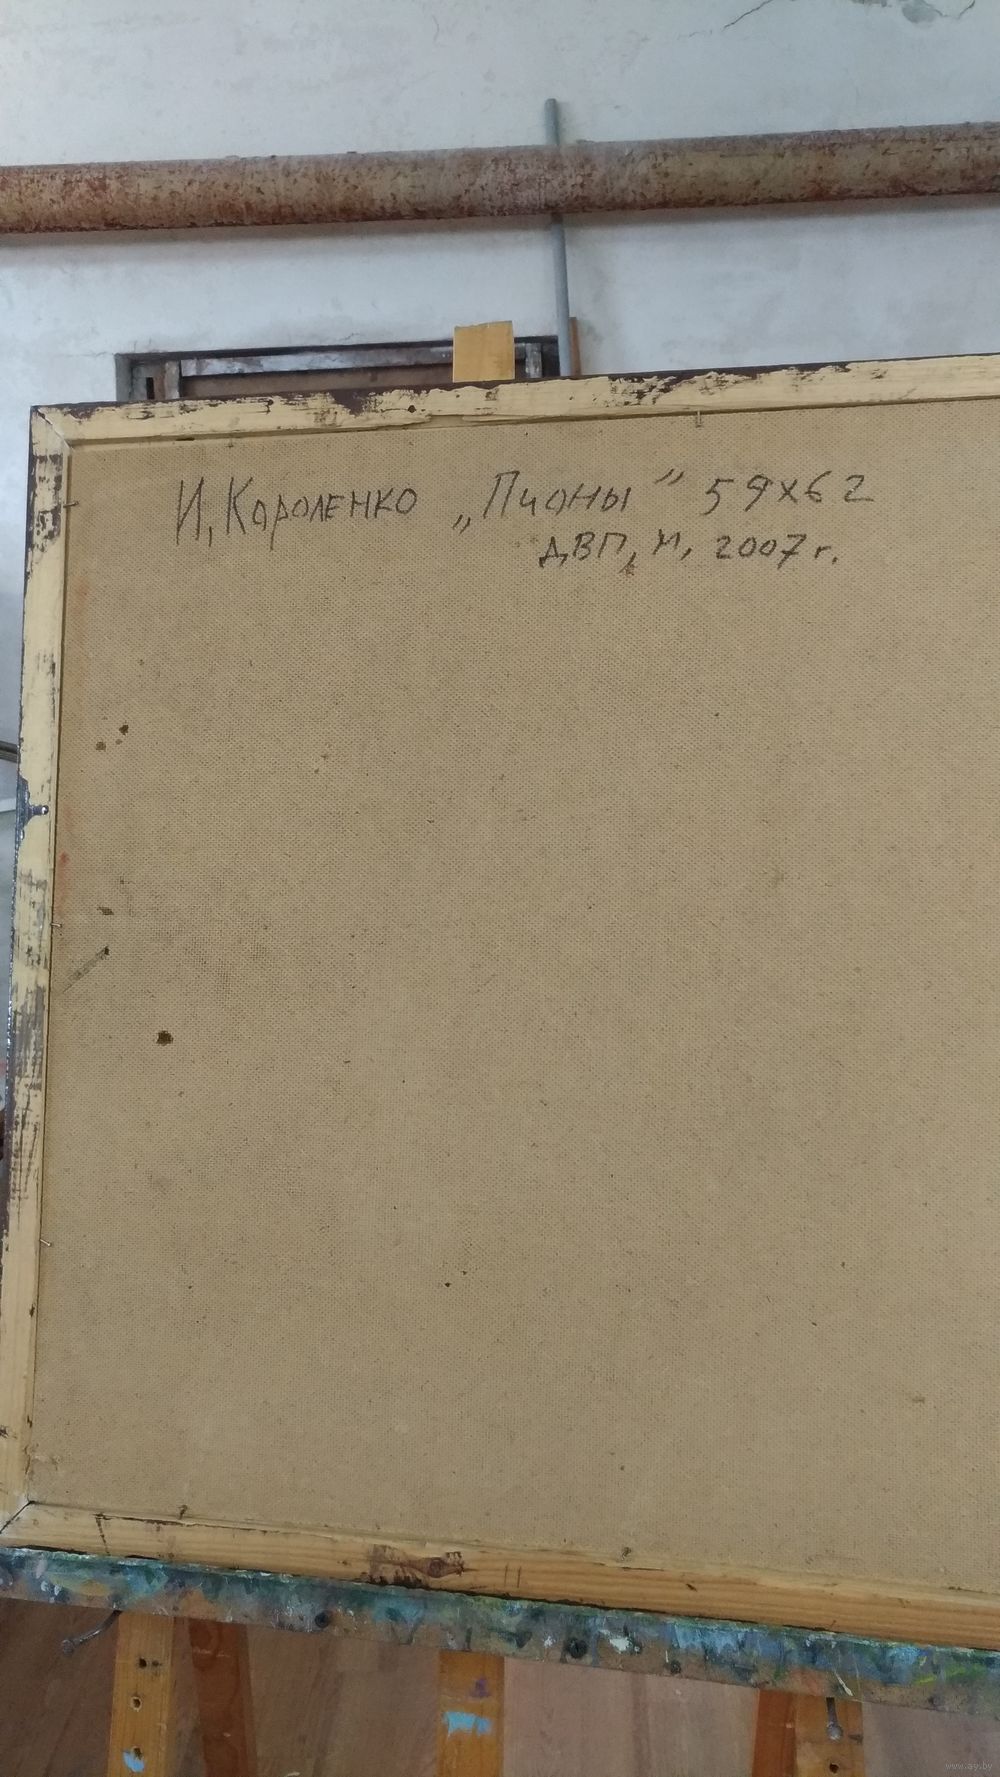 И, Короленко „Пионы” 59х62
ДВП, М, 2007 г.
www.ay.by